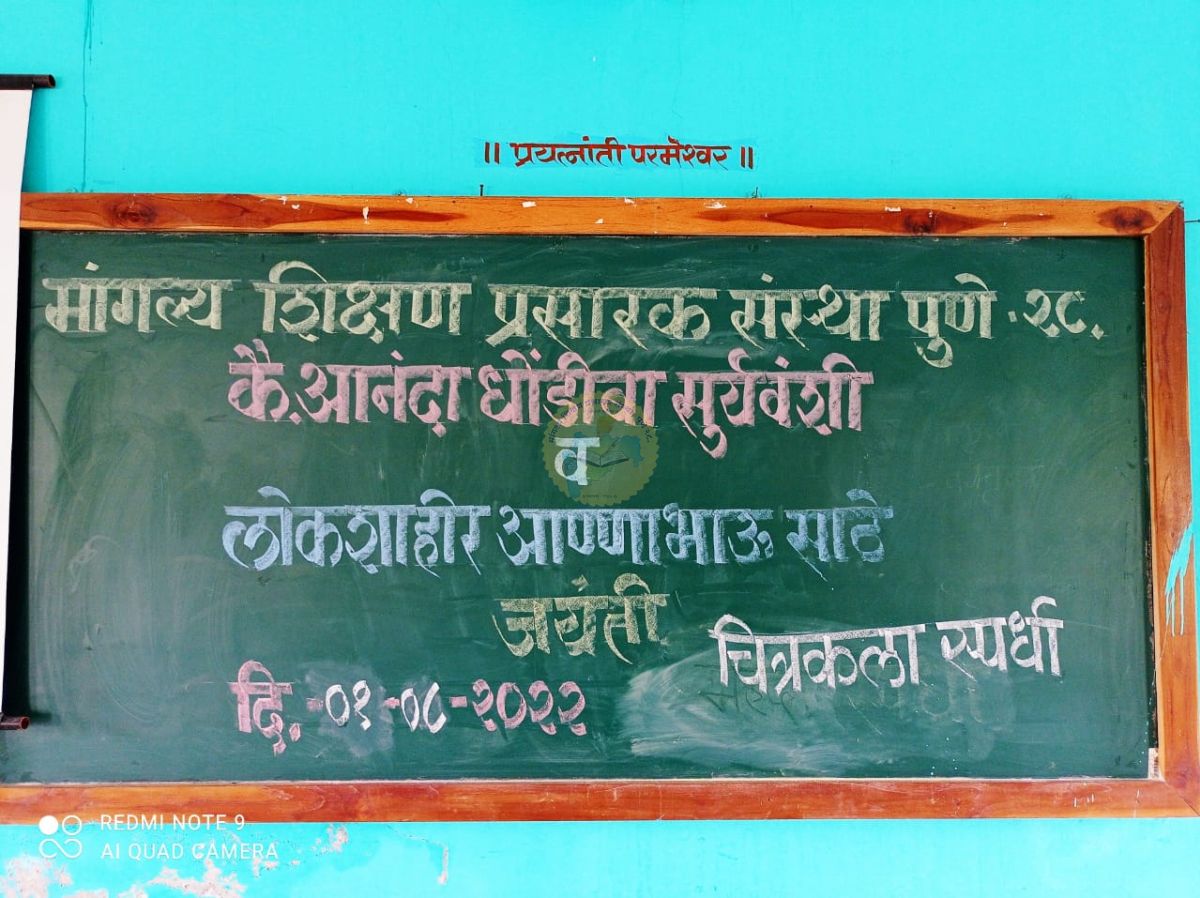 ॥ प्रयत्नांती परमेश्वर ॥
मांगल्य शिक्षण प्रसारक संस्था पुणे .२८.
कै.आनंदा धोंडीबा सुर्यवंशी
व
लोकशाहीर आण्णाभाऊ साठे
जयंती
चित्रकला स्पर्धा
दि.-०१-०८-२०२२
REDMI NOTE 9
AI QUAD CAMERA